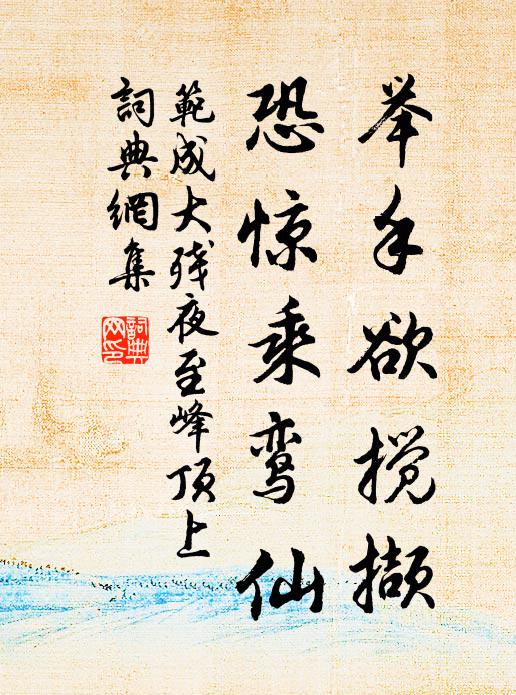 举手欲搅撷
恐惊乘鸾仙
範成大残夜至峰顶上
詞典網集
詞典网印